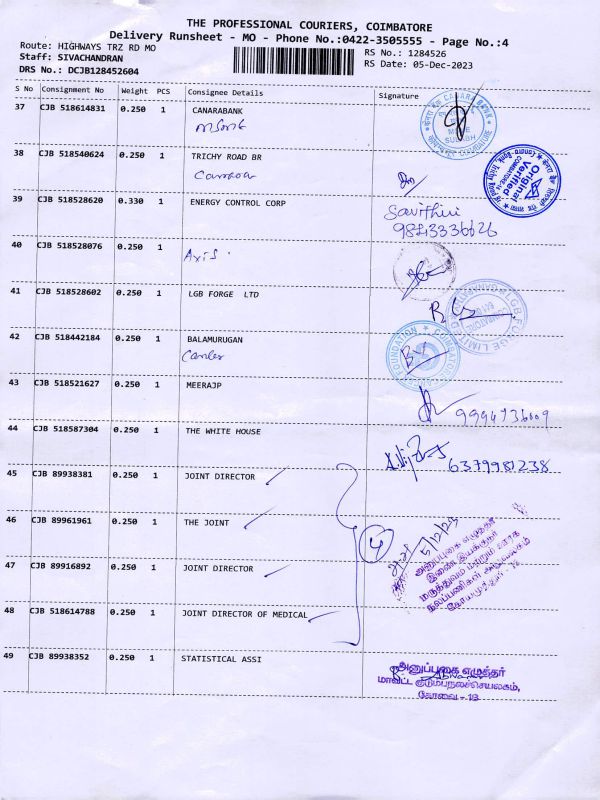 THE PROFESSIONAL COURIERS, COIMBATORE
Delivery Runsheet - MO - Phone No.:0422-3505555 - Page No.:4
Route: HIGHWAYS TRZ RD MO
RS No.: 1284526
Staff: SIVACHANDRAN
RS Date: 05-Dec-2023
DRS No.: DCJB128452604
S No Consignment No Weight PCS Consignee Details Signature
37 CJB 518614831 0.250 1 CANARABANK
CANARA BANK
38 CJB 518540624 0.250 1 TRICHY ROAD BR
Canara
Original Verified
39 CJB 518528620 0.330 1 ENERGY CONTROL CORP
Savithiri
9843336626
40 CJB 518528076 0.250 1
Axis
41 CJB 518528602 0.250 1 LGB FORGE LTD
LGB FORGE LIMITED
42 CJB 518442184 0.250 1 BALAMURUGAN
FOUNDATION COIMBATORE
43 CJB 518521627 0.250 1 MEERAJP
9994936009
44 CJB 518587304 0.250 1 THE WHITE HOUSE
6379981238
45 CJB 89938381 0.250 1 JOINT DIRECTOR
46 CJB 89961961 0.250 1 THE JOINT
4
5/12/23
அனுப்புகை எழுத்தர்
இணை இயக்குநர்
மருத்துவம் மற்றும் ஊரக
நலப்பணிகள் அலுவலகம்
கோயமுத்தூர் - 18
47 CJB 89916892 0.250 1 JOINT DIRECTOR
48 CJB 518614788 0.250 1 JOINT DIRECTOR OF MEDICAL
49 CJB 89938352 0.250 1 STATISTICAL ASSI
அனுப்புகை எழுத்தர்
மாவட்ட குடும்பநலச்செயலகம்,
கோவை - 18